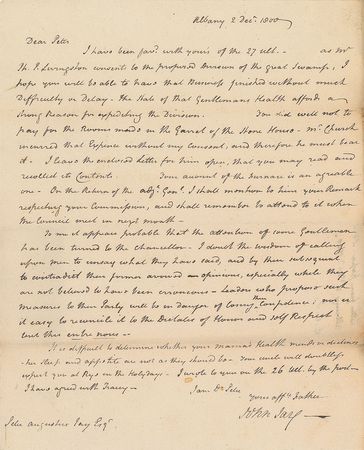 Albany 2 Dec.r 1800
Dear Peter
I have been fav.d with yours of the 27 Ult. — as Mr
H. P. Livingston consents to the proposed Division of the great Swamp, I
hope you will be able to have that Business finished without much
Difficulty or Delay — the State of that Gentlemans Health affords a
strong Reason for expediting the Division. You did well not to
pay for the Rooms made in the Garret of the Stone House — Mr. Church
incurred that Expence without my consent, and therefore he must bear
it. I leave the enclosed Letter for him open, that you may read and
recollect its Contents. Your account of the furnace is an agreeable
one — On the Return of the adj.t Gen.l I shall mention to him your Remark
respecting your Commission, and shall remember to attend to it when
the Council meet in next month —
To me it appears probable that the attention of some Gentlemen
has been turned to the chancellor — I doubt the wisdom of calling
upon men to unsay what they have said, and by their subsequent
to contradict their former avowed opinions, especially while they
are not believed to have been erroneous — Leaders who propose such
measures to their Party will be in danger of losing their Confidence; nor is
it easy to reconcile it to the Dictates of Honor and self Respect
but this entre nous —
It is difficult to determine whether your mamas Health mends or declines
— her sleep and appetite are not as they should be — You uncle will doubtless
expect you at Rye in the Holydays — I wrote to you on the 26 Ult. by the post —
I have agreed with Tracey — I am Dr. Peter
your aff.te Father
John Jay —
Peter Augustus Jay Esq.r